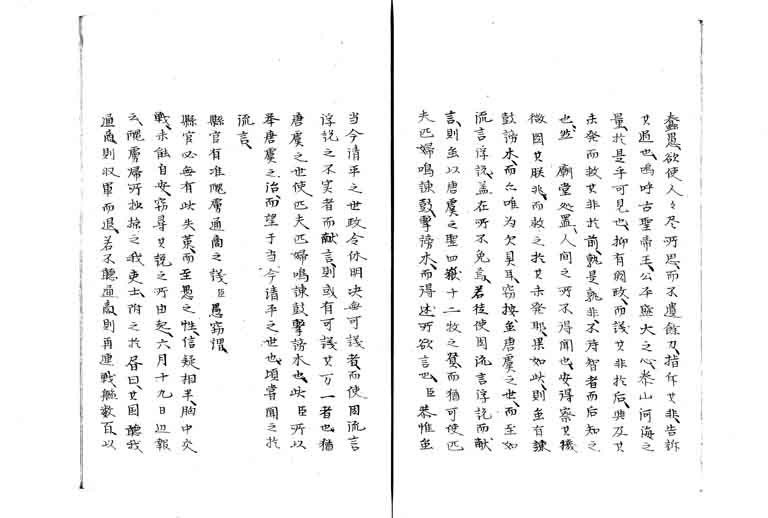 蠢愚、欲使人々尽所思、而不遺余力、指斥其非、告訴
其過也、嗚呼古聖帝王、公平廓大之心、泰山河海之
量、於是乎可見也、抑有国政、而議其非於后、與及其
未発而救其非於前、孰是孰非、不待智者而后知之
也、然　廟堂処置、人間之所不得聞也、安得察其機
微、因其朕兆、而救之於其未発耶、果如此、則無有諌
鼓謗木、而亦唯為欠具耳、窃按無唐虞之世、而至如
流言浮説、蓋在所不免焉、若徒使因流言浮説而献
言、則無以唐虞之聖、四嶽十二牧之賢、而猶可使匹
夫匹婦鳴諌鼓、撃謗木、而得述所欲言也、臣恭惟無
当今清平之世、政令休明、决無可議者、而使因流言
浮説之不実者而献言、則或有可議其万一者也、猶
唐虞之世、使匹夫匹婦鳴諌鼓、撃謗木也、此臣所以
挙唐虞之治、而望于当今清平之世也、頃嘗聞之於
流言、
縣官有准醜虜通商之議、臣愚窃謂、
縣官必無有此失策、而至愚之性、信疑相半、胸中交
戦、未能自安、窃尋其説之所由起、六月十九日辺報
云、醜虜帰所抄掠之我吏士、附之於書曰、其国聴我
通商、則収軍而退、若不聴通商、則再連戦艦数百、以